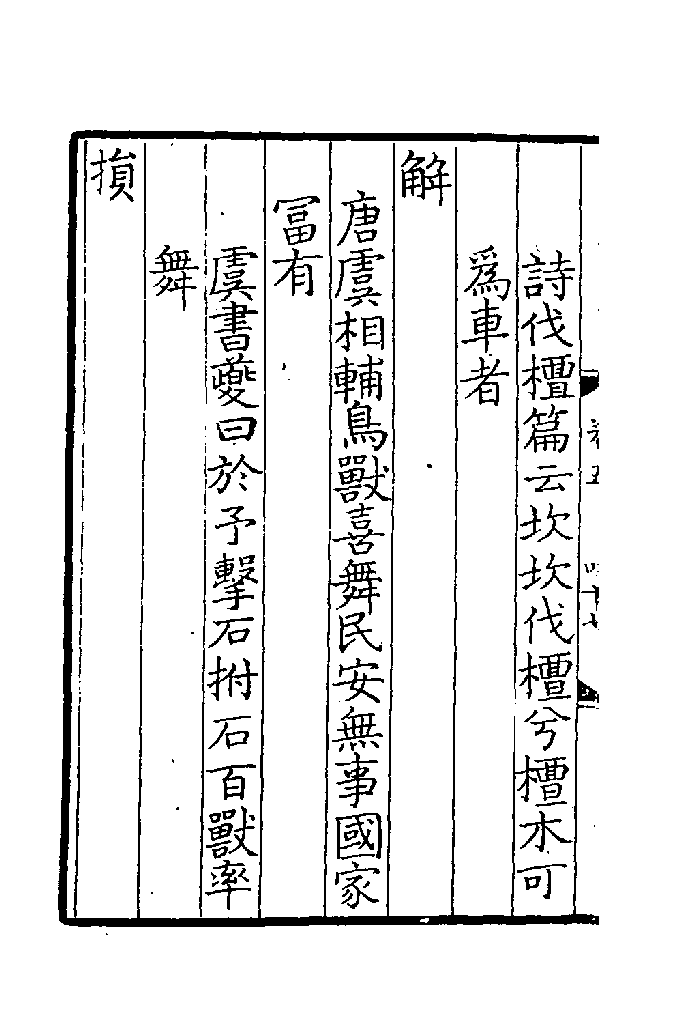 詩伐檀篇云坎坎伐檀兮檀木可
爲車者
解
唐虞相輔鳥獸喜舞民安無事國家
冨有
虞書夔曰於予擊石拊石百獸率
舞
損